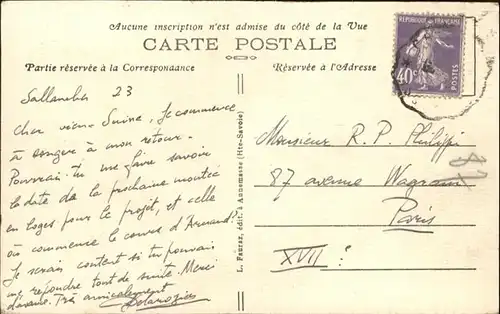 Aucune inscription n'est admise du côté de la Vue
CARTE POSTALE
Partie réservée à la Correspondance
Réservée à l'Adresse
RÉPUBLIQUE FRANÇAISE
40c
POSTES
Sallanches 23
Cher vieux Suisse, je commence
à songer à mon retour.
Pourrais-tu me faire savoir
la date de la prochaine montée
en loges pour le projet, et celle
où commence le cours d'Armand?
Je serais content si tu pouvais
me répondre tout de suite. Merci
d'avance. Très amicalement
L. Fauraz, édit. à Annemasse (Hte-Savoie)
Monsieur R. P. Philippi
87 avenue Wagram
Paris
XVII e